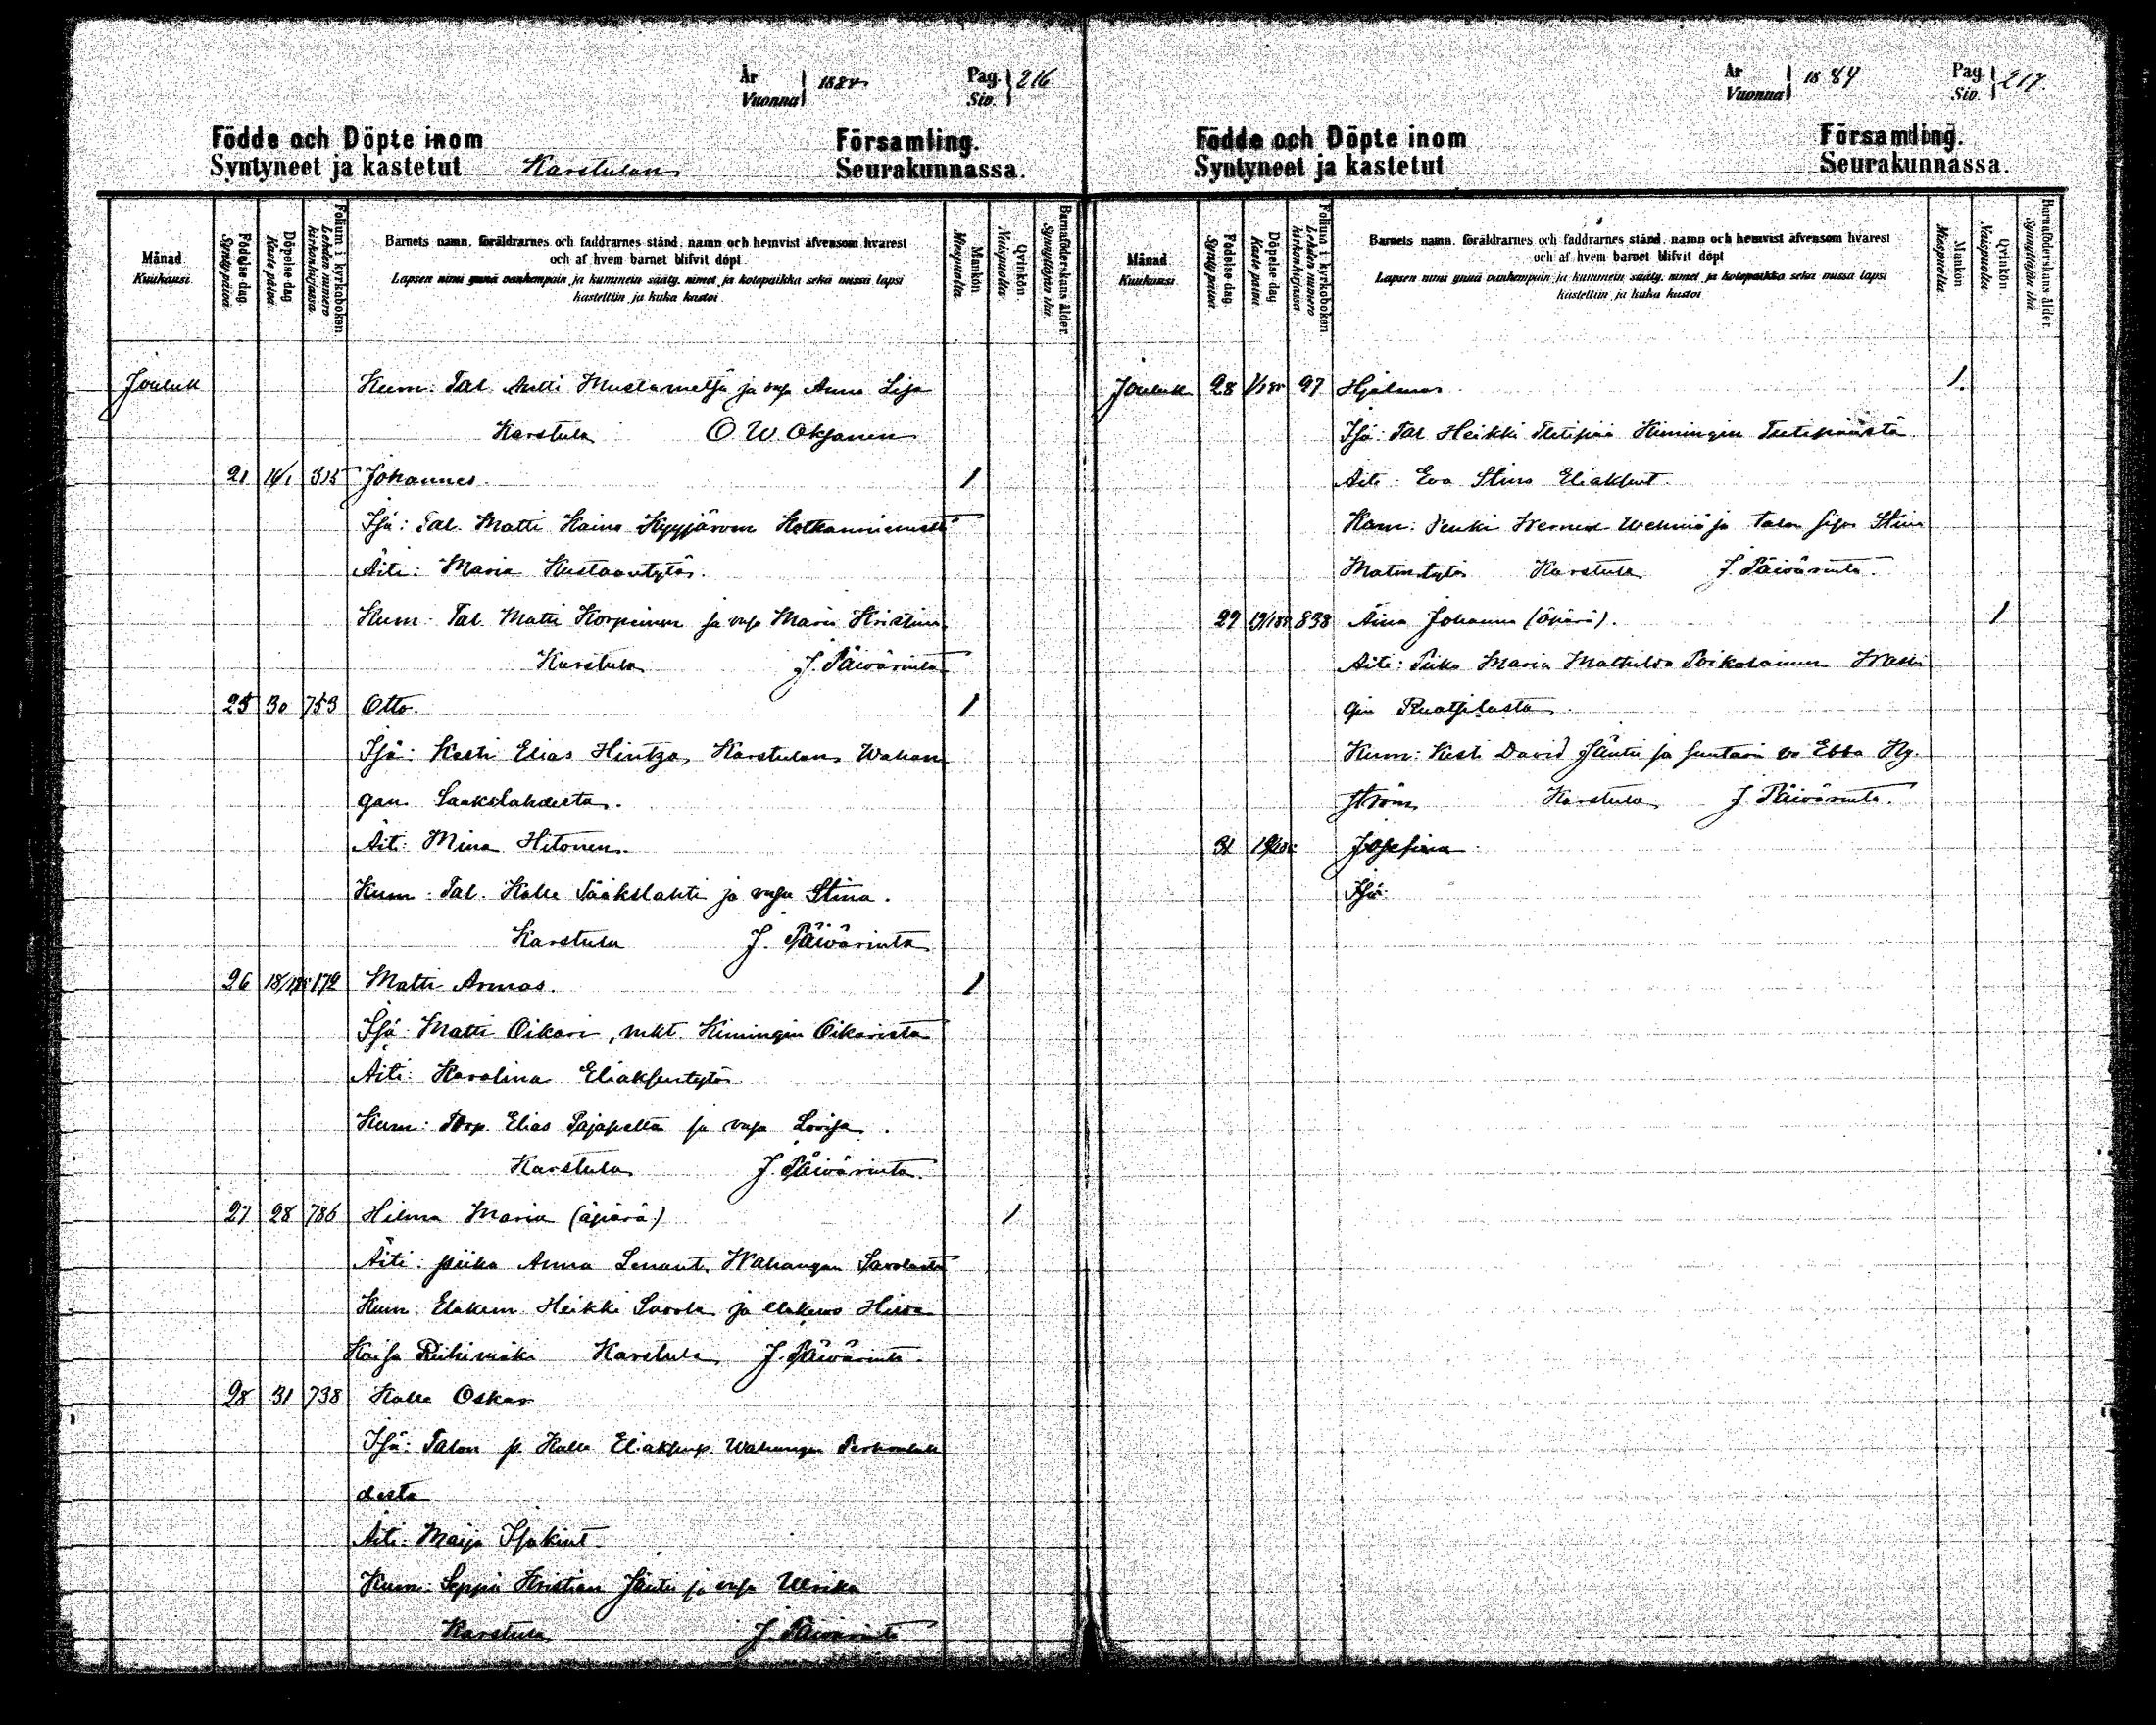 År
Vuonna
1884
Pag.
Siv.
216
Födde och Döpte inom
Församling.
Syntyneet ja kastetut
Karstulan
Seurakunnassa.
Månad
Kuukausi
Födelse dag.
Synty päivä
Döpelse dag
Kaste päivä
Folium i kyrkoboken.
Lehden numero kirkonkirjassa
Barnets namn, föräldrarnes och faddrarnes stånd, namn och hemvist äfvensom hvarest
och af hvem barnet blifvit döpt
Lapsen nimi ynnä vanhempain ja kummein sääty, nimet ja kotopaikka sekä missä lapsi
kastettiin ja kuka kastoi
Mankön
Miespuolta
Qvinkön
Naispuolta
Barnaföderskans ålder.
Synnyttäjän ikä
Jouluk
Kum: Tal. Antti Mustametsä ja vmo Anna Lisa
Karstula O W Oksanen
21 14/1 315 Johannes 1
Isä: Tal. Matti Kaina Kyyjärven Kotkanniemeltä
Äiti: Maria Kustaantytär.
Kum: Tal. Matti Korpinen ja vmo Maria Kristina
Karstula J. Päivärinta
25 30 753 Otto. 1
Isä: Kesti Elias Hintza, Karstulan Wahan
gan Saakslahdesta.
Äiti: Mina Hitonen.
Kum: Tal. Kalle Pääkslahti ja vmo Stina.
Karstula J. Päivärinta
26 18/1 85 172 Matti Armas. 1
Isä: Matti Oikari, mkt. Kimingin Oikarista
Äiti: Karolina Eliaksentytär
Kum: Torp. Elias Pajapelto ja vmo Lovisa.
Karstula J. Päivärinta.
27 28 786 Hilma Maria (äpärä) 1
Äiti: piika Anna Lenant. Wahangan Savolasta
Kum: Elakem Heikki Savola ja
Kaisa Riikimäki Karstula J. Päivärinta.
28 31 738 Kalle Oskar
Isä: Talon p. Kalle Eliaksenp. Wahangan
desta
Äiti: Maija Isakint.
Kum: Seppä Kristian Jäntti ja vmo Ulrika
Karstula J. Päivärinta
År
Vuonna
1884
Pag.
Siv.
217.
Födde och Döpte inom
Församling.
Syntyneet ja kastetut
Seurakunnassa.
Månad
Kuukausi
Födelse dag.
Synty päivä
Döpelse dag
Kaste päivä
Folium i kyrkoboken.
Lehden numero kirkonkirjassa
Barnets namn, föräldrarnes och faddrarnes stånd, namn och hemvist äfvensom hvarest
och af hvem barnet blifvit döpt
Lapsen nimi ynnä vanhempain ja kummein sääty, nimet ja kotopaikka sekä missä lapsi
kastettiin ja kuka kastoi
Mankön
Miespuolta
Qvinkön
Naispuolta
Barnaföderskans ålder.
Synnyttäjän ikä
Jouluk 28 97 Hjalmar 1.
Isä: Tal Heikki Kimingin
Äiti: Eva Stina Eliaksent.
Kum: Renki Werner ja talon Stina
Matintytär Karstula J. Päivärinta.
29 838 Aina Johanna (äpärä). 1
Äiti: Piika Maria Mathilda Poikolainen
gin
Kum: Kesti David Jäntti ja suntarin vo Ebba Ny-
ström Karstula J. Päivärinta.
31 Josefina
Isä: